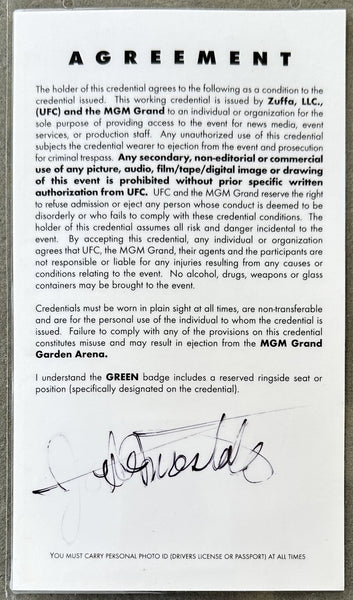 AGREEMENT
The holder of this credential agrees to the following as a condition to the
credential issued. This working credential is issued by Zuffa, LLC.,
(UFC) and the MGM Grand to an individual or organization for the
sole purpose of providing access to the event for news media, event
services, or production staff. Any unauthorized use of this credential
subjects the credential wearer to ejection from the event and prosecution
for criminal trespass. Any secondary, non-editorial or commercial
use of any picture, audio, film/tape/digital image or drawing
of this event is prohibited without prior specific written
authorization from UFC. UFC and the MGM Grand reserve the right
to refuse admission or eject any person whose conduct is deemed to be
disorderly or who fails to comply with these credential conditions. The
holder of this credential assumes all risk and danger incidental to the
event. By accepting this credential, any individual or organization
agrees that UFC, the MGM Grand, their agents and the participants are
not responsible or liable for any injuries resulting from any causes or
conditions relating to the event. No alcohol, drugs, weapons or glass
containers may be brought to the event.
Credentials must be worn in plain sight at all times, are non-transferable
and are for the personal use of the individual to whom the credential is
issued. Failure to comply with any of the provisions on this credential
constitutes misuse and may result in ejection from the MGM Grand
Garden Arena.
I understand the GREEN badge includes a reserved ringside seat or
position (specifically designated on the credential).
YOU MUST CARRY PERSONAL PHOTO ID (DRIVERS LICENSE OR PASSPORT) AT ALL TIMES